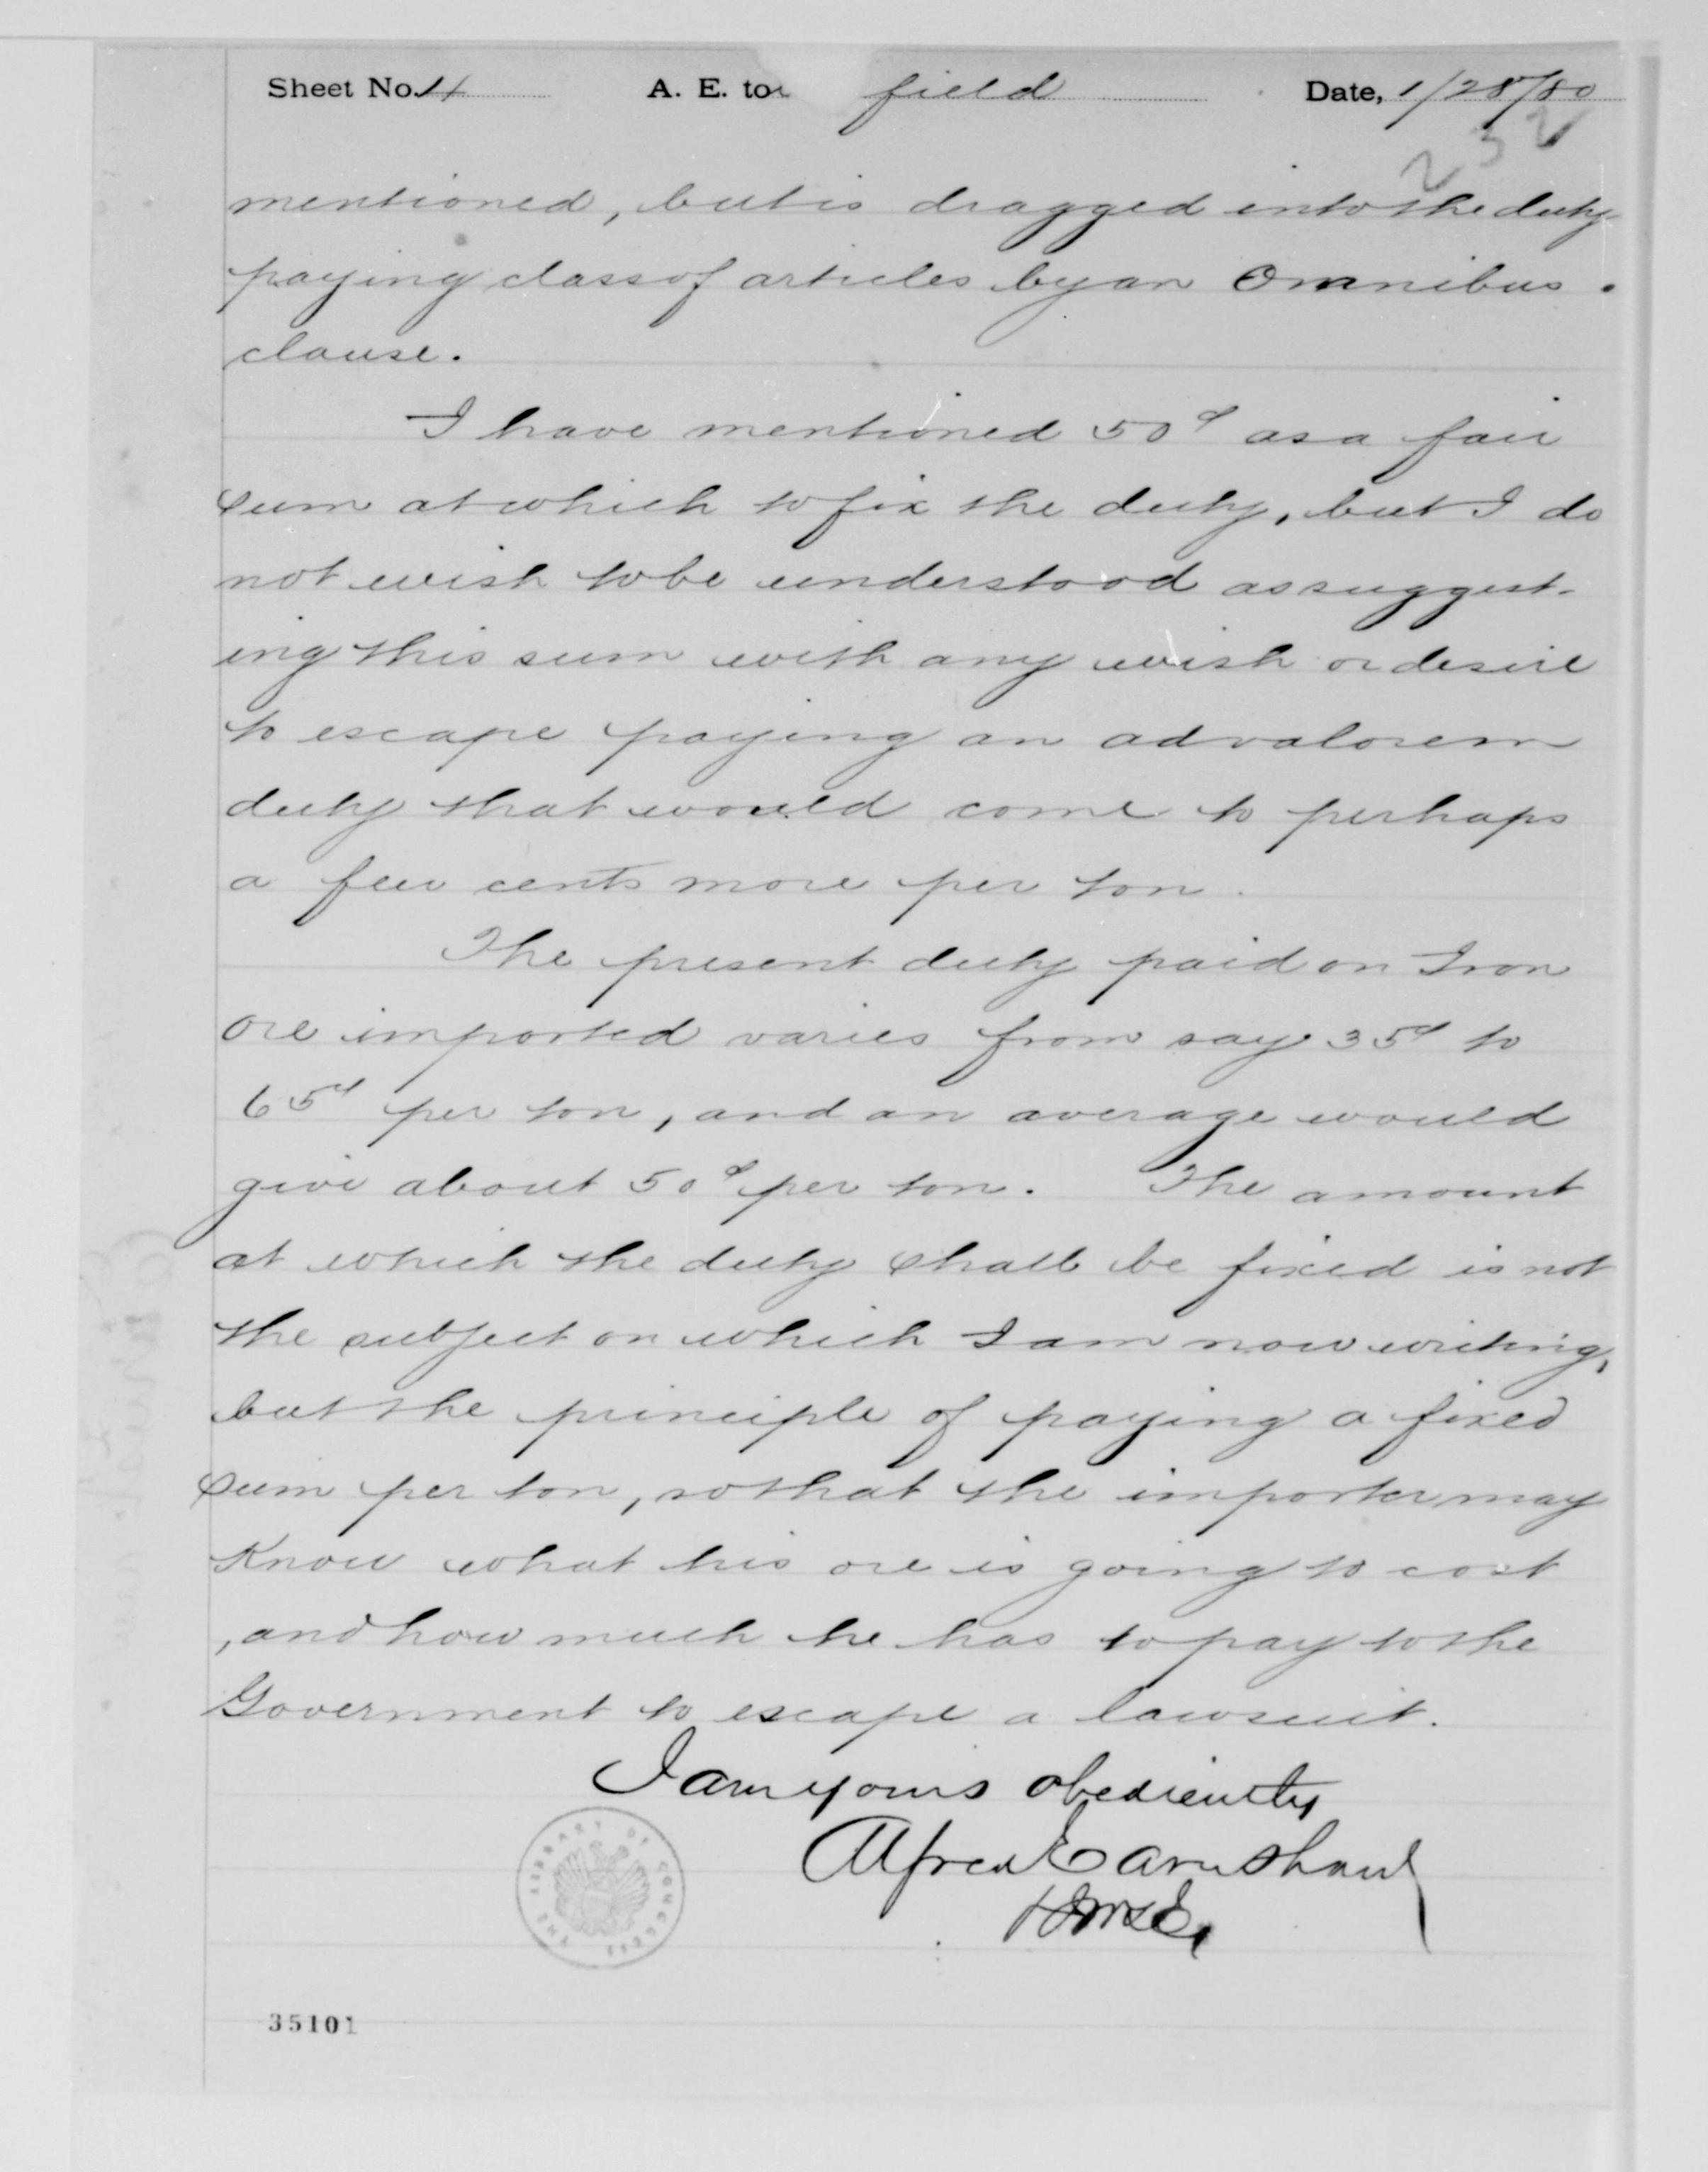 Sheet No. 4 A. E. to field Date, 1/28/80
232
mentioned, but is dragged into the duty
paying class of articles by an Omnibus.
clause.
I have mentioned 50¢ as a fair
sum at which to fix the duty, but I do
not wish to be understood as suggest-
ing this sum with any wish or desire
to escape paying an advalorem
duty that would come to perhaps
a few cents more per ton.
The present duty paid on Iron
ore imported varies from say 35¢ to
65¢ per ton, and an average would
give about 50¢ per ton. The amount
at which the duty shall be fixed is not
the subject on which I am now writing,
but the principle of paying a fixed
sum per ton, so that the importer may
Know what his ore is going to cost
, and how much he has to pay to the
Government to escape a lawsuit.
I am yours obediently
Alfred Earnshaw
THE LIBRARY OF CONGRESS
35101